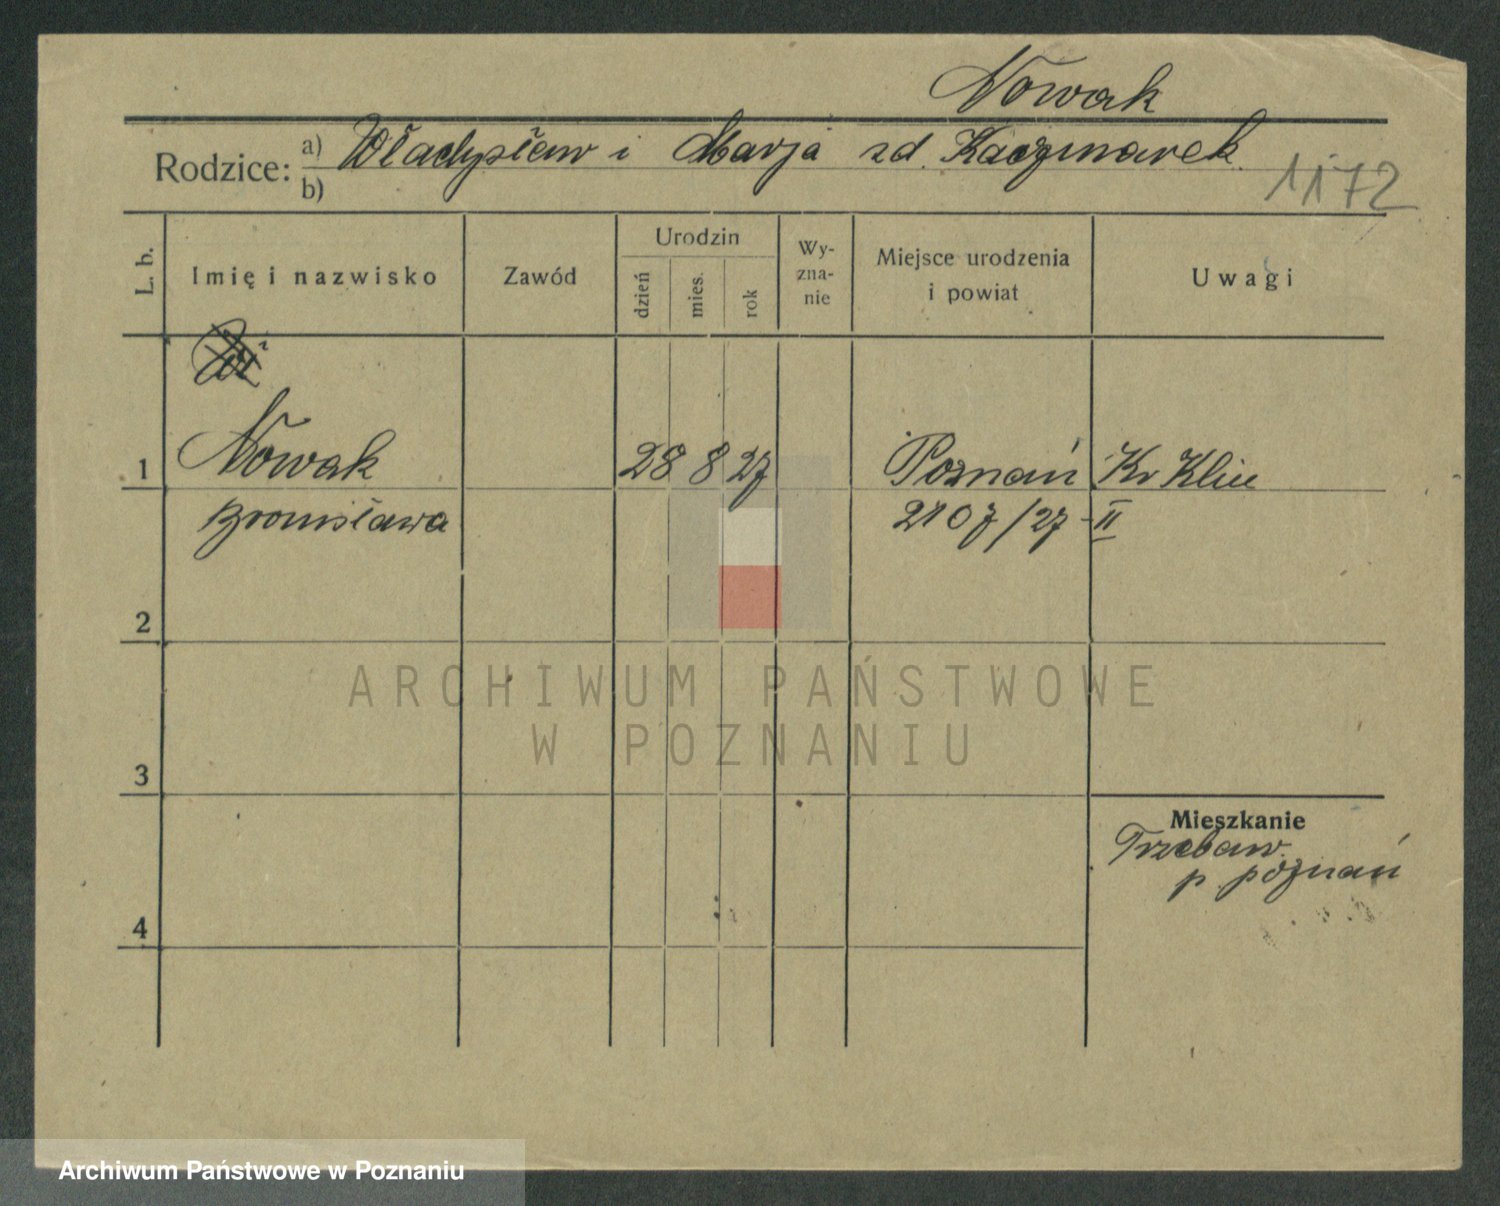 Nowak
Rodzice: a) Władysław i Marja zd. Kaczmarek
b)
1172
L. b.
Imię i nazwisko
Zawód
Urodzin
dzień
mies.
rok
Wy-
zna-
nie
Miejsce urodzenia
i powiat
Uwagi
1 Nowak 28 8 27 Poznań Kr Klin
Bronisława 2107/27-II
2
ARCHIWUM PAŃSTWOWE
W POZNANIU
3
Mieszkanie
Trzebaw
p. poznań
4
Archiwum Państwowe w Poznaniu